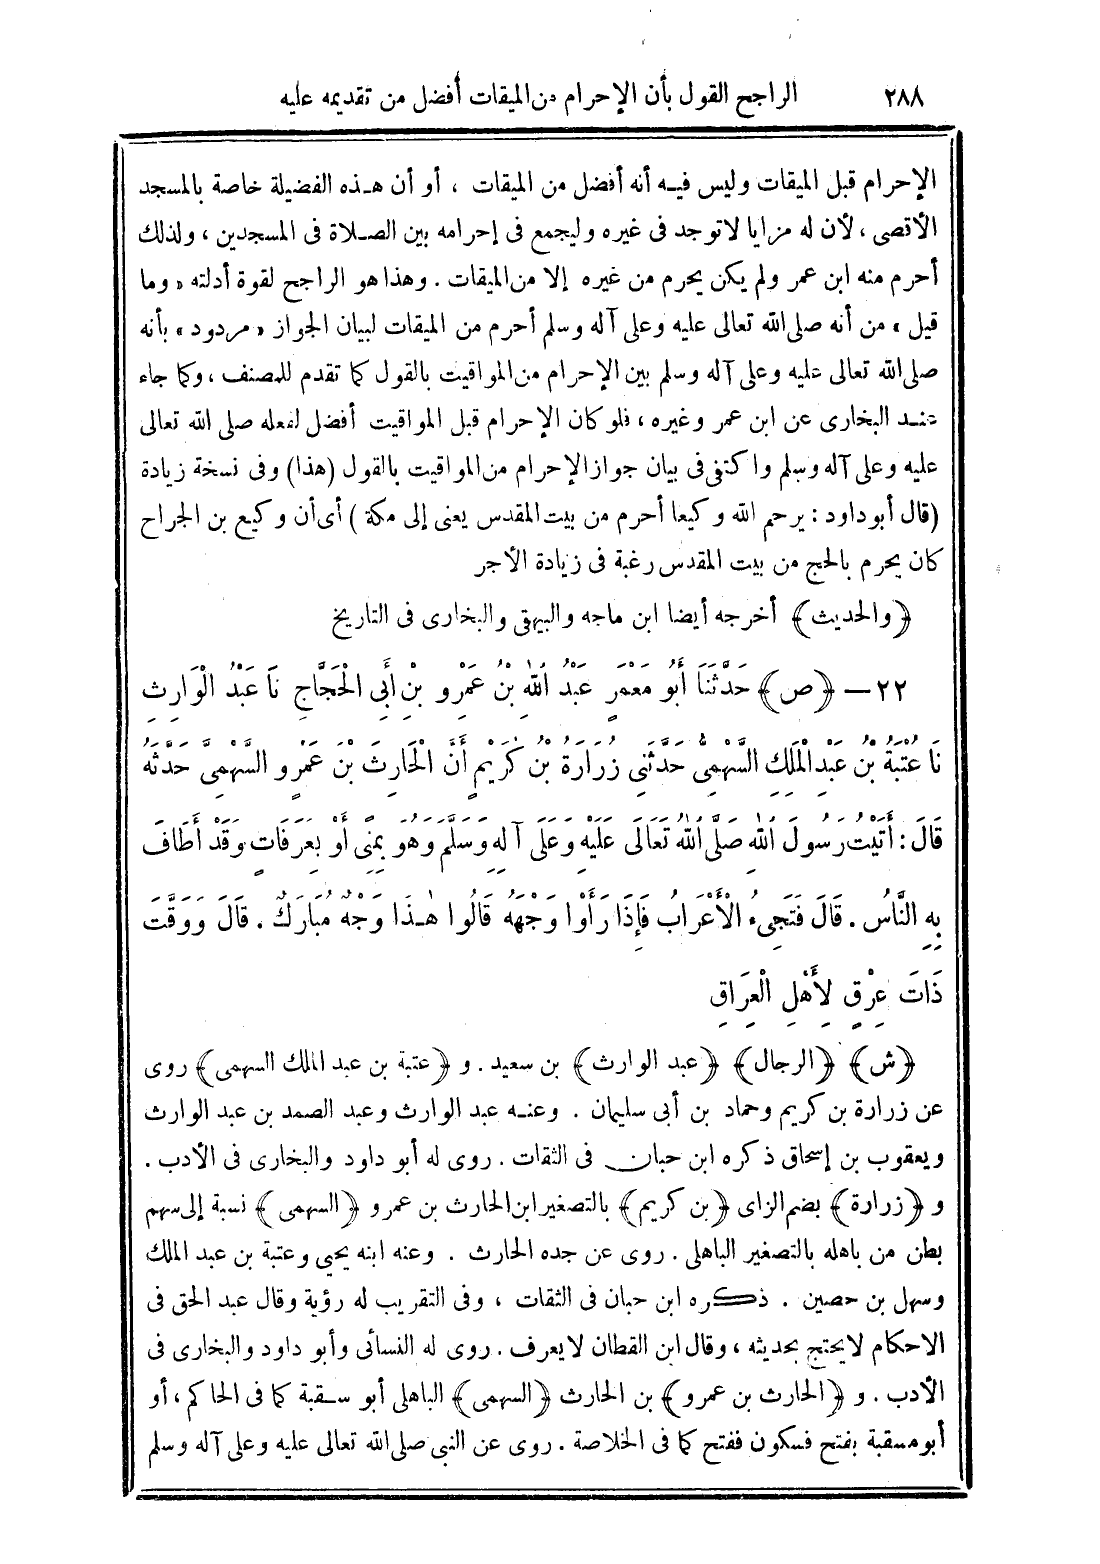 ٢٨٨ الراجح القول بأن الإحرام من الميقات أفضل من تقديمه عليه
الإحرام قبل الميقات وليس فيه أنه أفضل من الميقات ، أو أن هذه الفضيلة خاصة بالمسجد
الأقصى ، لأن له مزايا لا توجد فى غيره وليجمع فى إحرامه بين الصلاة فى المسجدين ، ولذلك
أحرم منه ابن عمر ولم يكن يحرم من غيره إلا من الميقات . وهذا هو الراجح لقوة أدلته «وما
قيل» من أنه صلى الله تعالى عليه وعلى آله وسلم أحرم من الميقات لبيان الجواز «مردود» بأنه
صلى الله تعالى عليه وعلى آله وسلم بين الإحرام من المواقيت بالقول كما تقدم للمصنف ، وكما جاء
عند البخارى عن ابن عمر وغيره ، فلو كان الإحرام قبل المواقيت أفضل لفعله صلى الله تعالى
عليه وعلى آله وسلم واكتفى فى بيان جواز الإحرام من المواقيت بالقول (هذا) وفى نسخة زيادة
(قال أبو داود : يرحم الله وكيعا أحرم من بيت المقدس يعنى إلى مكة) أى أن وكيع بن الجراح
كان يحرم بالحج من بيت المقدس رغبة فى زيادة الأجر
﴿والحديث﴾ أخرجه أيضا ابن ماجه والبيهقى والبخارى فى التاريخ
٢٢ — ﴿ص﴾ حَدَّثَنَا أَبُو مَعْمَرٍ عَبْدُ اللهِ بْنُ عَمْرِو بْنِ أَبِى الْحَجَّاجِ نَا عَبْدُ الْوَارِثِ
نَا عُتْبَةُ بْنُ عَبْدِ الْمَلِكِ السَّهْمِىُّ حَدَّثَنِى زُرَارَةُ بْنُ كُرَيْمٍ أَنَّ الْحَارِثَ بْنَ عَمْرٍو السَّهْمِىَّ حَدَّثَهُ
قَالَ : أَتَيْتُ رَسُولَ اللهِ صَلَّى اللهُ تَعَالَى عَلَيْهِ وَعَلَى آلِهِ وَسَلَّمَ وَهُوَ بِمِنًى أَوْ بِعَرَفَاتٍ وَقَدْ أَطَافَ
بِهِ النَّاسُ . قَالَ فَتَجِىءُ الْأَعْرَابُ فَإِذَا رَأَوْا وَجْهَهُ قَالُوا هٰذَا وَجْهٌ مُبَارَكٌ . قَالَ وَوَقَّتَ
ذَاتَ عِرْقٍ لِأَهْلِ الْعِرَاقِ
﴿ش﴾ ﴿الرجال﴾ ﴿عبد الوارث﴾ بن سعيد . و ﴿عتبة بن عبد الملك السهمى﴾ روى
عن زرارة بن كريم وحماد بن أبى سليمان . وعنه عبد الوارث وعبد الصمد بن عبد الوارث
ويعقوب بن إسحاق ذكره ابن حبان فى الثقات . روى له أبو داود والبخارى فى الأدب .
و ﴿زرارة﴾ بضم الزاى ﴿بن كريم﴾ بالتصغير ابن الحارث بن عمرو ﴿السهمى﴾ نسبة إلى سهم
بطن من باهله بالتصغير الباهلى . روى عن جده الحارث . وعنه ابنه يحيى وعتبة بن عبد الملك
وسهل بن حصين . ذكره ابن حبان فى الثقات ، وفى التقريب له رؤية وقال عبد الحق فى
الاحكام لا يحتج بحديثه ، وقال ابن القطان لا يعرف . روى له النسائى وأبو داود والبخارى فى
الأدب . و ﴿الحارث بن عمرو﴾ بن الحارث ﴿السهمى﴾ الباهلى أبو سقبة كما فى الحاكم ، أو
أبو مسقبة بفتح فسكون ففتح كما فى الخلاصة . روى عن النبى صلى الله تعالى عليه وعلى آله وسلم